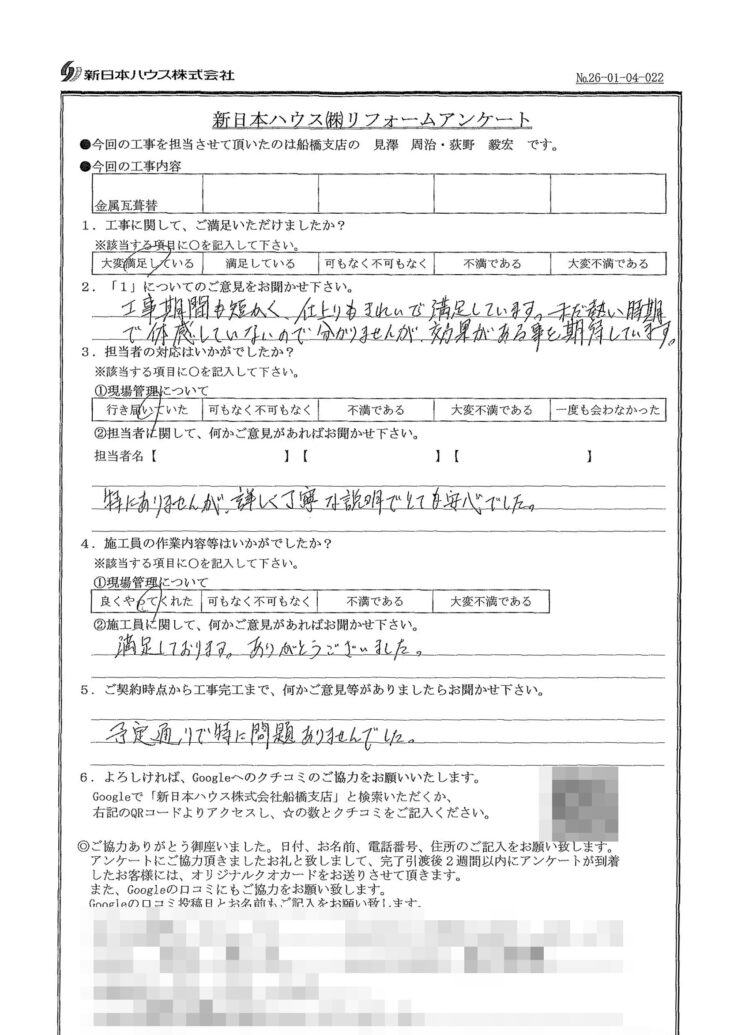 新日本ハウス株式会社
№26-01-04-022
新日本ハウス㈱リフォームアンケート
●今回の工事を担当させて頂いたのは船橋支店の 見澤 周治・荻野 毅宏 です。
●今回の工事内容
金属瓦葺替
1．工事に関して、ご満足いただけましたか？
※該当する項目に〇を記入して下さい。
大変満足している 満足している 可もなく不可もなく 不満である 大変不満である
2．「1」についてのご意見をお聞かせ下さい。
工事期間も短かく、仕上りもきれいで満足しています。まだ熱い時期
で体感していないので分かりませんが、効果がある事を期待しています。
3．担当者の対応はいかがでしたか？
※該当する項目に〇を記入して下さい。
①現場管理について
行き届いていた 可もなく不可もなく 不満である 大変不満である 一度も会わなかった
②担当者に関して、何かご意見があればお聞かせ下さい。
担当者名【 】【 】【 】
特にありませんが、詳しく丁寧な説明でとても安心でした。
4．施工員の作業内容等はいかがでしたか？
※該当する項目に〇を記入して下さい。
①現場管理について
良くやってくれた 可もなく不可もなく 不満である 大変不満である
②施工員に関して、何かご意見があればお聞かせ下さい。
満足しております。ありがとうございました。
5．ご契約時点から工事完工まで、何かご意見等がありましたらお聞かせ下さい。
予定通りで特に問題ありませんでした。
6．よろしければ、Googleへのクチコミのご協力をお願いいたします。
Googleで「新日本ハウス株式会社船橋支店」と検索いただくか、
右記のQRコードよりアクセスし、☆の数とクチコミをご記入ください。
◎ご協力ありがとう御座いました。日付、お名前、電話番号、住所のご記入をお願い致します。
アンケートにご協力頂きましたお礼と致しまして、完了引渡後２週間以内にアンケートが到着
したお客様には、オリジナルクオカードをお送りさせて頂きます。
また、Googleの口コミにもご協力をお願い致します。
Googleの口コミ投稿日とお名前もご記入をお願い致します。